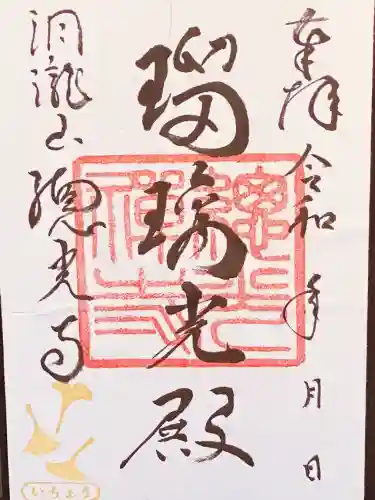 奉拝 令和 年 月 日
瑠璃光殿
洞瀧山總光寺
いちょう